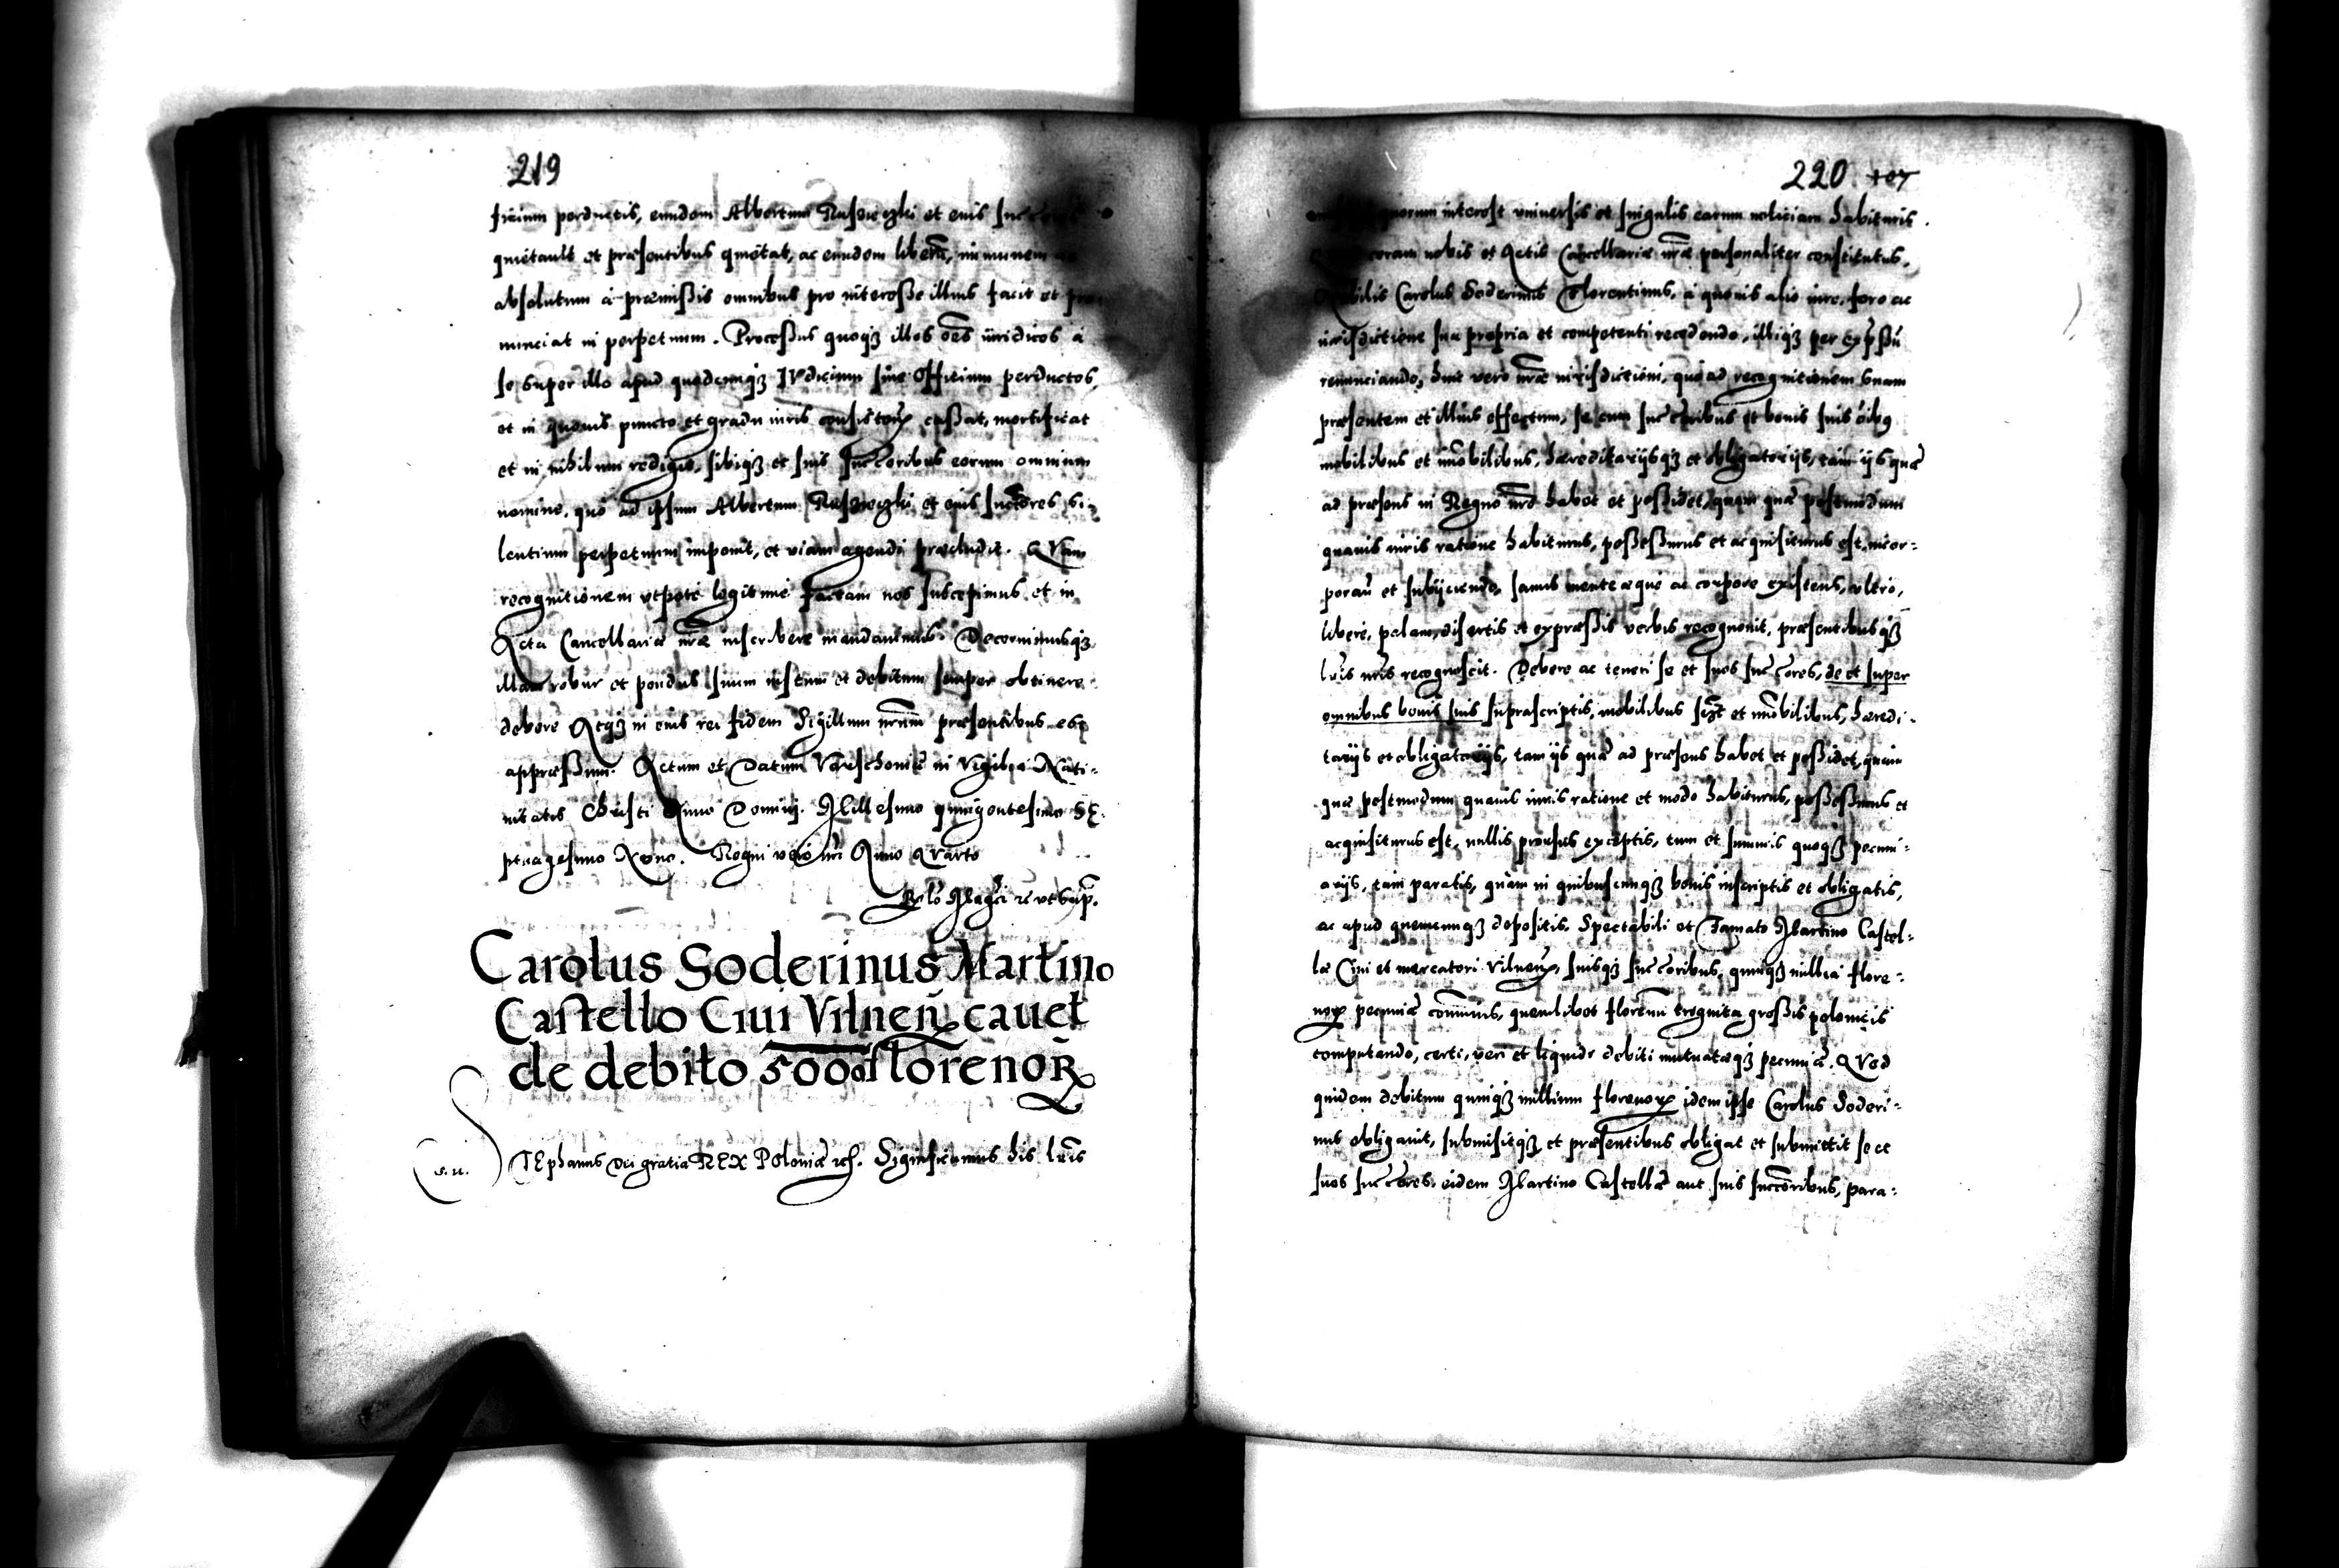 219
ficium perductis, eundem Albertum Rusieczki et eius
quietauit et præsentibus quietat, ac eundem liberũ, immunem
absolutum à præmissis omnibus pro interesse illius facit et
nunciat in perpetuum. Processus quoqȝ illos oẽs iuridicos à
se super illo apud quodcumqȝ IVdicium siue Officium perductos,
et in quouis puncto et gradu iuris cassat, mortificat
et in nihilum redigit, sibiqȝ et suis succ̃oribus eorum omnium
nomine, quò ad ipsum Albertum et eius succ̃ores si-
lentium perpetuum imponit, et viam agendi præcludit. QVam
recognitionem vtpote legitime factam nos suscepimus et in
Acta Cancellariæ nr̃æ inscribere mandauimus. Decernimusqȝ
illam robur et pondus suum iustum et debitum semper obtinere
debere Atqȝ in eius rei fidem Sigillum nr̃um præsentibus est
appressum. Actum et Datum Varschouiæ in Vigilia Nati-
uitatis Christi Anno Domini. Millesimo quingentesimo SE-
ptuagesimo Nono. Regni vero nr̃i Anno QVarto
Carolus Soderinus Martino
Castello Ciui Vilneñ cauet
de debito 5000 florenoꝝ
STEphanus Dei gratia REX Poloniæ Significamus his lr̃is
220 107
quorum interest vniuersis et singulis earum noticiam habituris.
coram nobis et Actis Cancellariæ nr̃æ personaliter constitutus,
Nobilis Carolus Soderinus Florentinus, à quouis alio iure, foro ac
iurisdictione sua propria et competenti recedendo, illiqȝ per exp̃ssũ
renunciando, huic vero nr̃æ iurisdictioni, quò ad recognitionem suam
præsentem et illius effectum, se cum succ̃oribus et bonis suis oĩbꝯ
mobilibus et im̃obilibus, hæreditarijsqȝ et obligatorijs, tam ijs quæ
ad præsens in Regno nr̃o habet et possidet, quam quæ postmodum
quauis iuris ratione habiturus, possessurus et acquisiturus est, incor-
porañ et subijciendo, sanus mente æque ac corpore existens, vltro,
libere, palam, disertis et expressis verbis recognouit, præsentibusqȝ
lr̃is nr̃is recognoscit. Debere ac teneri se et suos succ̃ores, de et super
omnibus bonis suis suprascriptis, mobilibus et im̃obilibus, hæredi-
tarijs et obligatorijs, tam ijs quæ ad præsens habet et possidet, quam
quæ postmodum quauis iuris ratione et modo habiturus, possessurus et
acquisiturus est, nullis prorsus exceptis, tum et summis quoqȝ pecuni-
arijs, tam paratis, quàm in quibuscumqȝ bonis inscriptis et obligatis,
ac apud quemcumqȝ depositis. Spectabili et Famato Martino Castel-
læ Ciui et mercatori Vilneñ, suisqȝ succ̃oribus, quinqȝ millia flore-
noꝝ pecuniæ com̃unis, quemlibet florenũ triginta grossis polonicis
computando, certi, veri et liquidi debiti mutuatæqȝ pecuniæ. QVod
quidem debitum quinqȝ millium florenoꝝ idem ipse Carolus Soderi-
nus obligauit, submisitqȝ et præsentibus obligat et submittit se et
suos succ̃ores, eidem Martino Castellæ aut suis succ̃oribus, para-